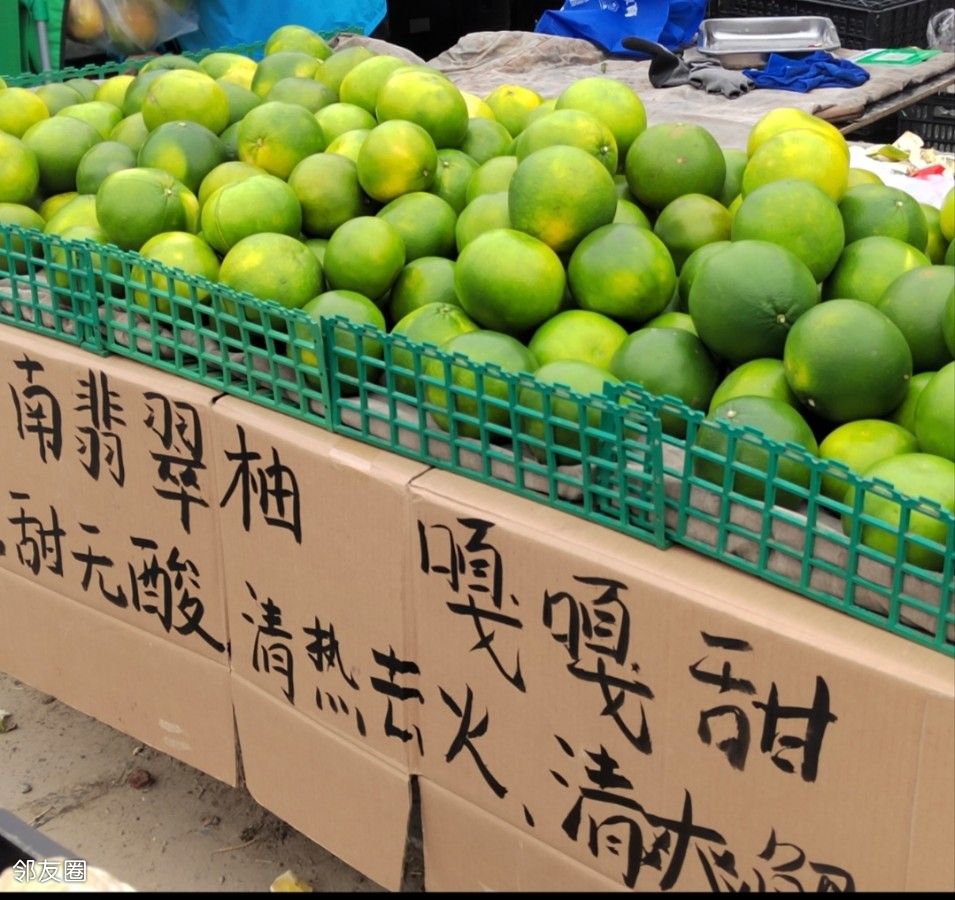 南翡翠柚 嘎嘎甜
甜无酸 清热去火、清爽解
邻友圈